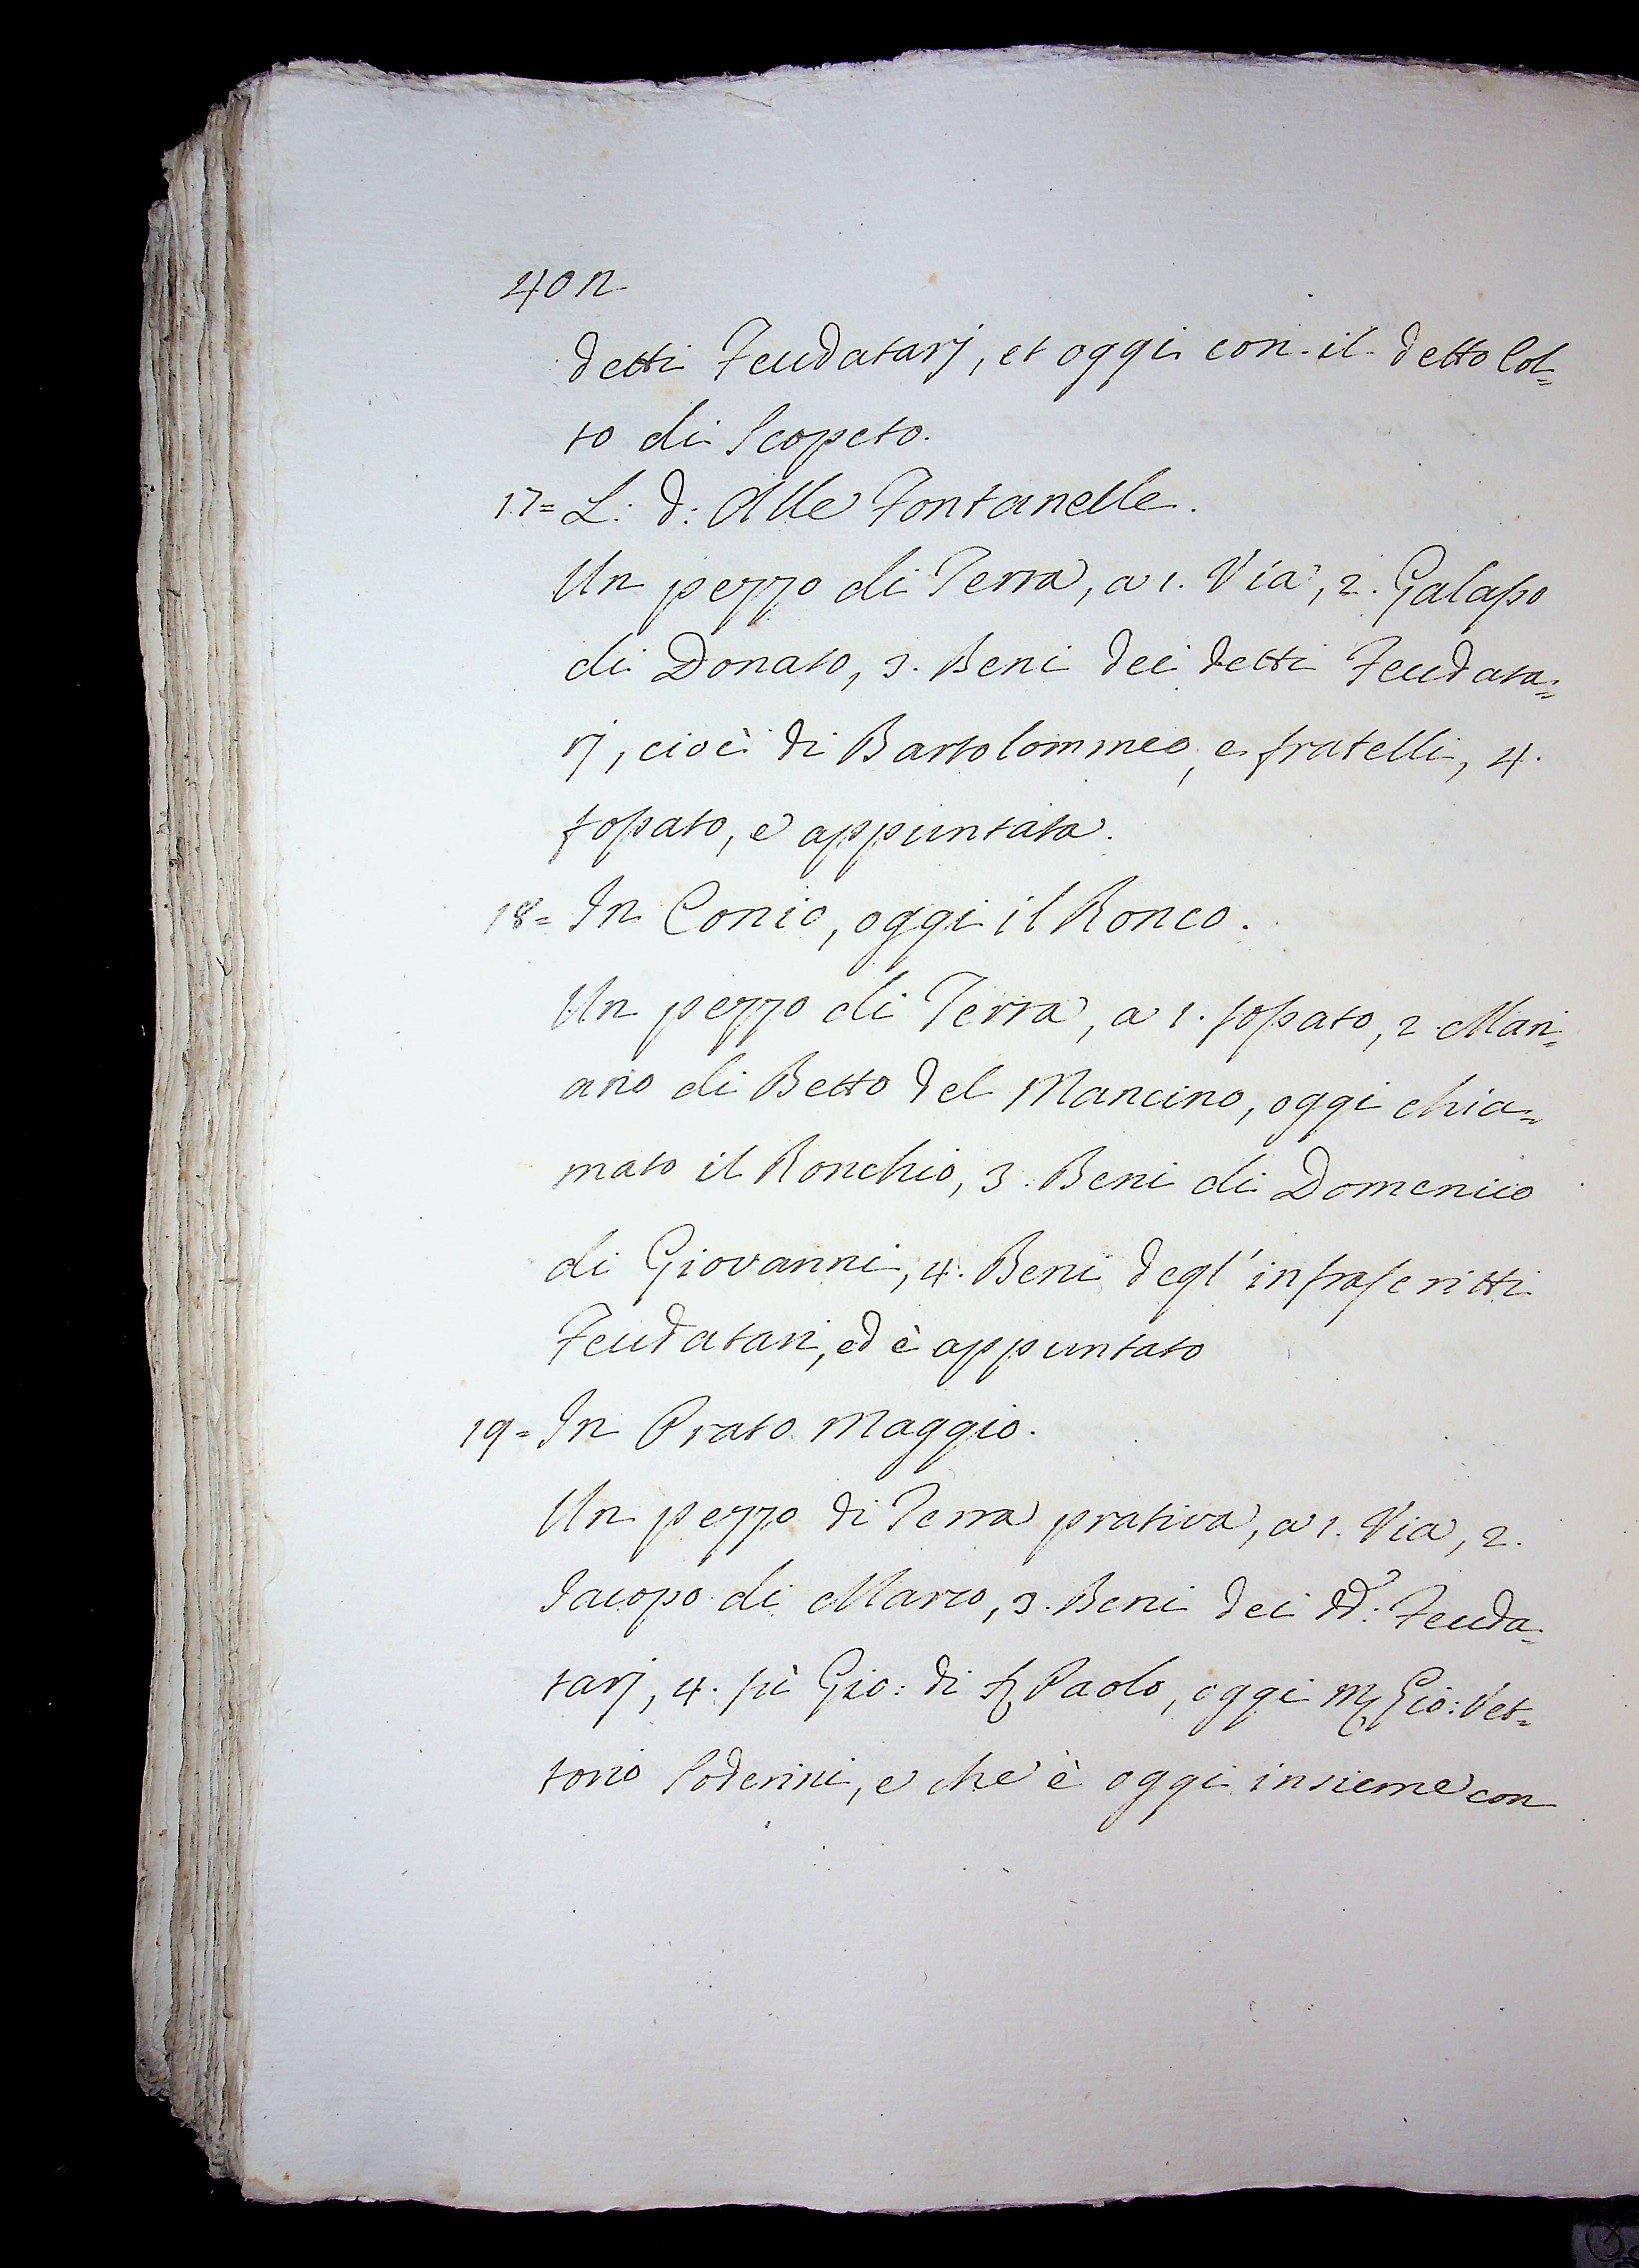 40 n
detti Feudatarj, et oggi con il detto Col=
to di Scopeto.
17= L: d: Alle Fontanelle.
Un pezzo di Terra, a 1. Via, 2. Galasso
di Donato, 3. Beni dei detti Feudata=
rj, cioè di Bartolommeo, e fratelli, 4.
fossato, e appuntata.
18= In Conio, oggi il Ronco.
Un pezzo di Terra, a 1. fossato, 2 Mari=
ano di Betto del Mancino, oggi chia=
mato il Ronchio, 3. Beni di Domenico
di Giovanni, 4. Beni degl' infrascritti
Feudatari, ed è appuntato
19= In Prato Maggio.
Un pezzo di Terra prativa, a 1. Via, 2.
Jacopo di Marco, 3. Beni dei dd: Feuda=
tarj, 4. fù Gio: di Paolo, oggi Gio: Vet=
torio Soderini, e che è oggi insieme con